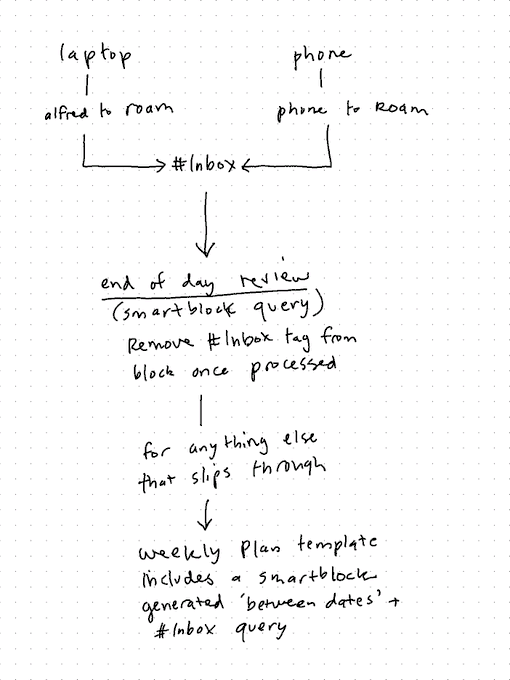 laptop
phone
alfred to roam
phone to Roam
#Inbox
end of day review
(smartblock query)
Remove #Inbox tag from
block once processed
for anything else
that slips through
weekly Plan template
includes a smartblock
generated 'between dates' +
#Inbox query